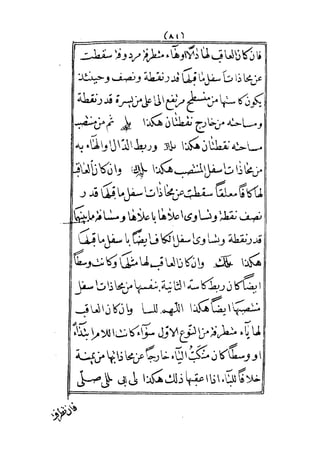 (٨١)
فان كان العاقب لها ذالا او هاء متطرفة مردوفا سقطت
عن محاذات اسفل ما قبلها قدر نقطة ونصف وحينئذ
يكون كاسها من منسطح مرتفع الى اعلى من يسرة قدر نقطة
ومساحته من خارج نقطتان هكذا ثم من منتصب
مساحته نقطتان هكذا وربط الدال والهاء به
من محاذات اسفل المنتصب هكذا وان كان العاقب
لها كافا معلقا سقطت عن محاذات اسفل ما قبلها قدر
نصف نقطة وتساوى اعلاها باعلاها ومسافة ما بينهما
قدر نقطة وتساوى اسفل الكاف ايضا باسفل ما قبلها
هكذا وان كان العاقب لها مثلها وكانت وسطا
ايضا كان ربط كاسه الثانية بنفسها من محاذات اسفل
منتصبها ايضا هكذا اللهم وان كان العاقب
لها ياء متطرفة من النوع الاول سواء كانت اللام ابتداء
او وسطا كان منكب الياء خارجا عن محاذاتها من يمنة
خلافا للباء اذا اعقبها ذلك هكذا لى بى على صلى
فان تطرفت